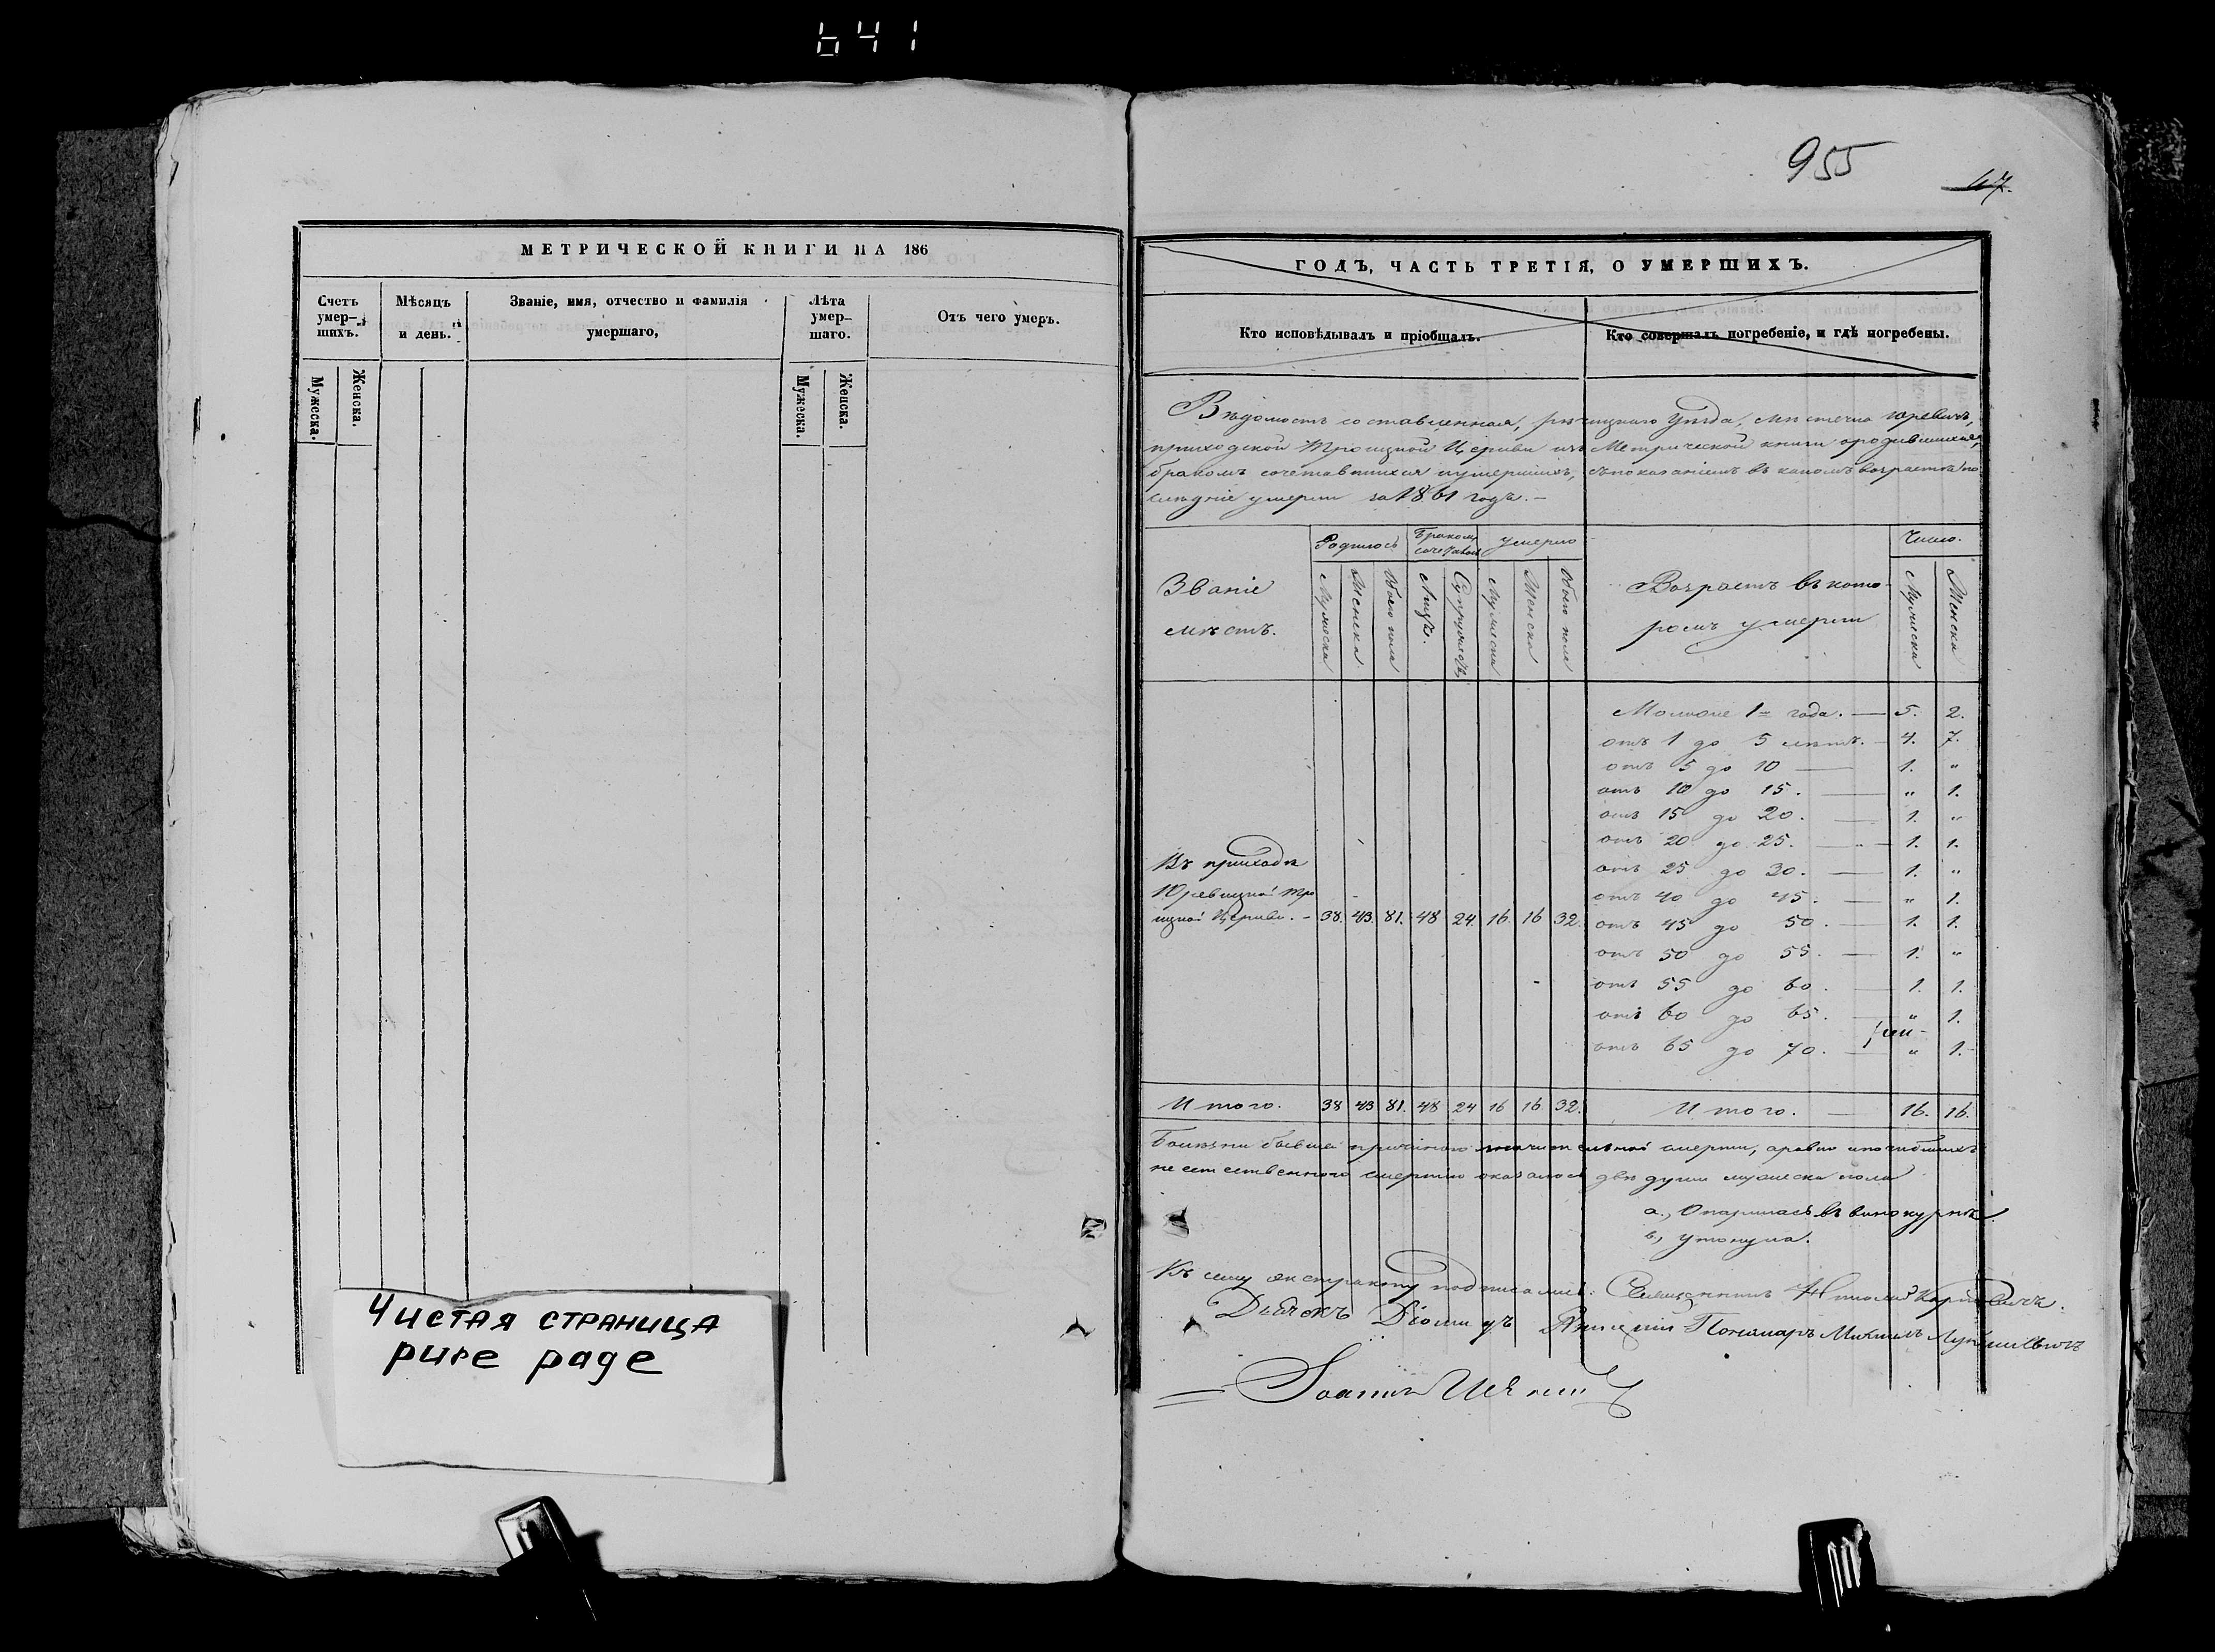 641
МЕТРИЧЕСКОЙ КНИГИ НА 186
Счетъ умер-шихъ.
Мѣсяцъ и день.
Званіе, имя, отчество и фамилія умершаго,
Лѣта умер-шаго.
Отъ чего умеръ.
Мужеска.
Женска.
Мужеска.
Женска.
Чистая страница
pure page
955
47.
ГОДЪ, ЧАСТЬ ТРЕТІЯ, О УМЕРШИХЪ.
Кто исповѣдывалъ и пріобщалъ.
Кто совершалъ погребеніе, и гдѣ погребены.
Вѣдомость составленная, рѣчицкаго Уѣзда, мѣстечка Юревичъ,
приходской Троицкой Церкви изъ Метрической книги о родившихся,
бракомъ сочетавшихся и умершихъ, съ показаніемъ въ какомъ возрастѣ по
слѣдніе умерли за 1861 годъ. —
Званіе мѣстъ.
Родилось
Бракомъ
умерло
Возрастъ въ кото-
ромъ умерли
Число.
Мужеска
Женска
Обоего пола
Лицъ.
Супружествъ,
Мужеска
Женска
Обоего пола
Мужеска
Женска
1 года. — 5. 2.
отъ 1 до 5 лѣтъ. — 4. 7.
отъ 5 до 10 — 1. "
отъ 10 до 15. — " 1.
отъ 15 до 20. — 1. "
отъ 20 до 25. — 1. 1.
отъ 25 до 30. — 1. "
отъ 40 до 45. — " 1.
отъ 45 до 50. — 1. 1.
отъ 50 до 55. — 1. "
отъ 55 до 60. — 1. 1.
отъ 60 до 65. — " 1.
отъ 65 до 70. — " 1.
Въ приходѣ
Юревицкой Тро
ицкой Церкви. — 38. 43. 81. 48 24. 16. 16 32.
Итого. 38 43 81. 48 24 16 16 32.
Итого. — 16. 16.
Болѣзни бывшей причиною значительной смерти, а равно и погибшихъ
неестественною смертію оказалось двѣ души мужеска пола
а., Опарилась въ винокурнѣ.
в., утонула.
Къ сему экстракту подписались: Священникъ Николай
Дьячокъ Діомидъ Пономарь Михаилъ
Іоаннъ